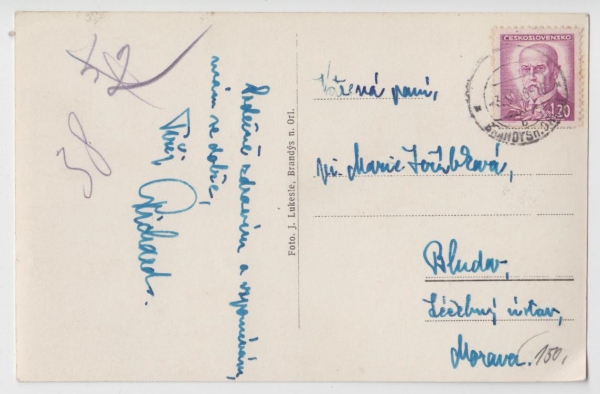 Srdečně zdravím a vzpomínám,
mám se dobře,
Tvůj
Richard.
Foto. J. Lukesle, Brandýs n. Orl.
ČESKOSLOVENSKO
1.20
BRANDÝS n. O
Vážená paní,
pí. Marie
Bludov,
Léčebný ústav,
Morava.
150,
58